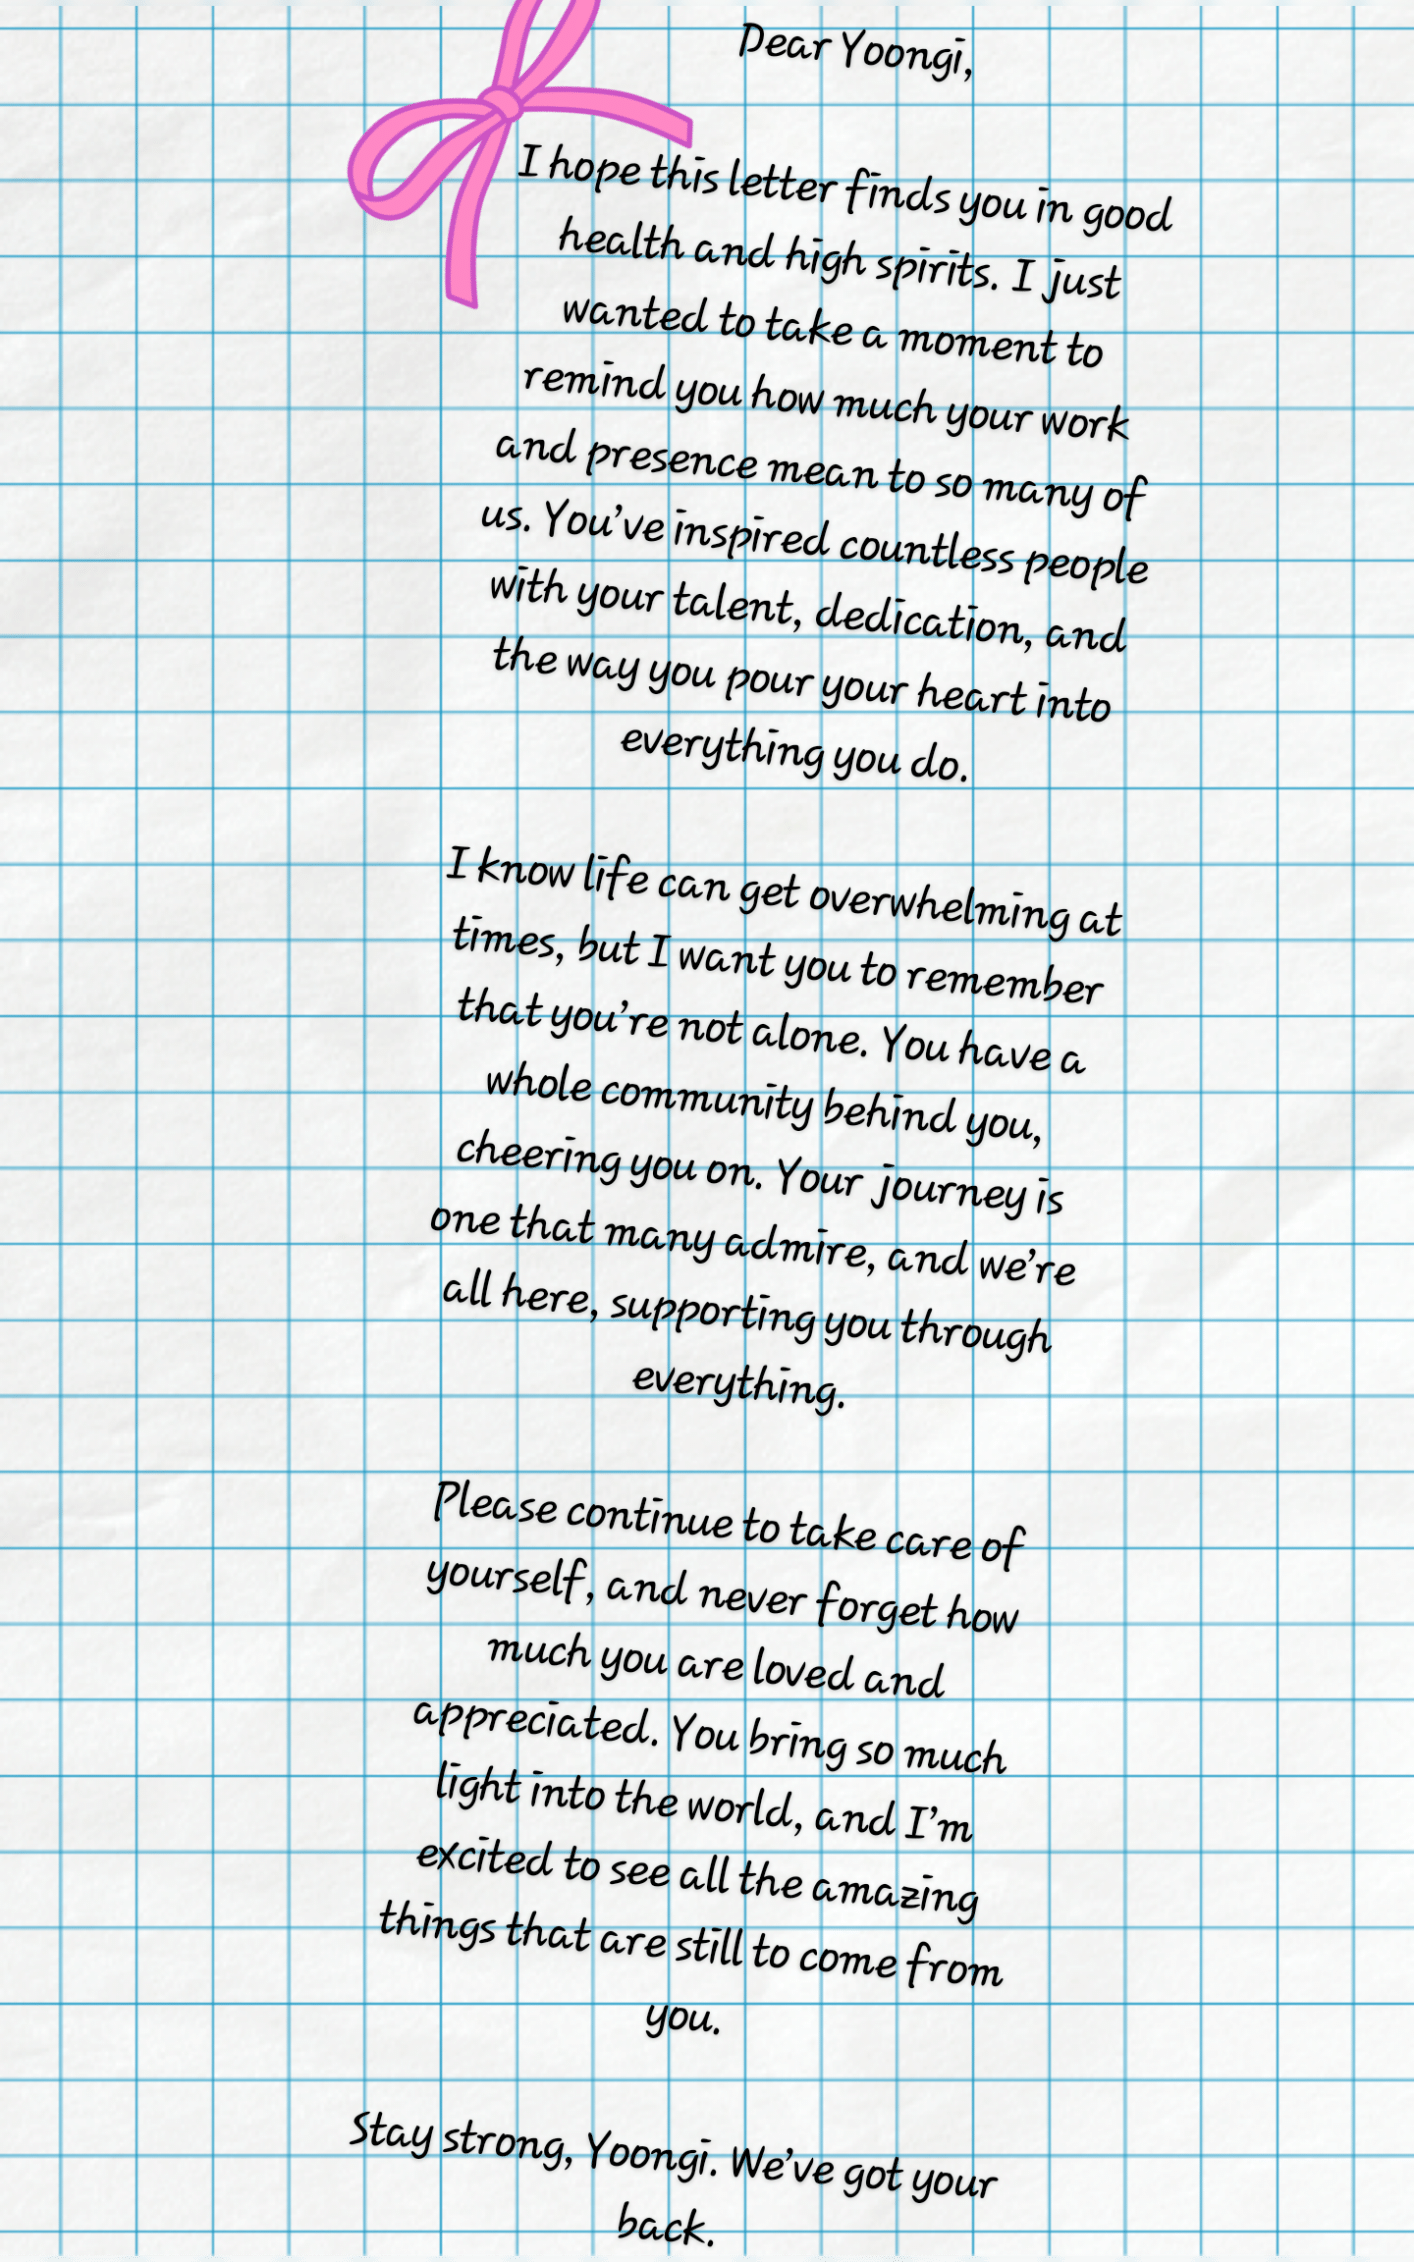 Dear Yoongi,
I hope this letter finds you in good
health and high spirits. I just
wanted to take a moment to
remind you how much your work
and presence mean to so many of
us. You've inspired countless people
with your talent, dedication, and
the way you pour your heart into
everything you do.
I know life can get overwhelming at
times, but I want you to remember
that you're not alone. You have a
whole community behind you,
cheering you on. Your journey is
one that many admire, and we're
all here, supporting you through
everything.
Please continue to take care of
yourself, and never forget how
much you are loved and
appreciated. You bring so much
light into the world, and I'm
excited to see all the amazing
things that are still to come from
you.
Stay strong, Yoongi. We've got your
back.